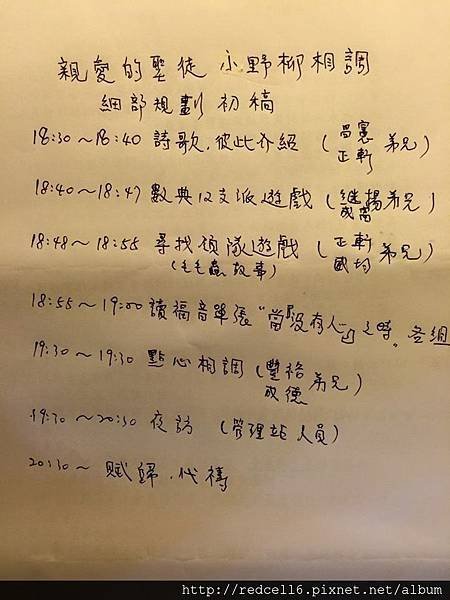 親愛的聖徒 小野柳相調
細部規劃 初稿
18:30～18:40 詩歌.彼此介紹 (正軒 弟兄)
18:40～18:47 數典12支派遊戲 (继揚弟兄)
18:48～18:55 尋找偵隊遊戲 (正軒 國均 弟兄)
(毛毛蟲故事)
18:55～19:00 讀福音單張"當沒有人"之時。各組
19:30～19:30 點心相調 (豐裕 成德 弟兄)
19:30～20:30 夜訪 (管理站人員)
20:30～ 賦歸.代禱
http://redcell6.pixnet.net/album